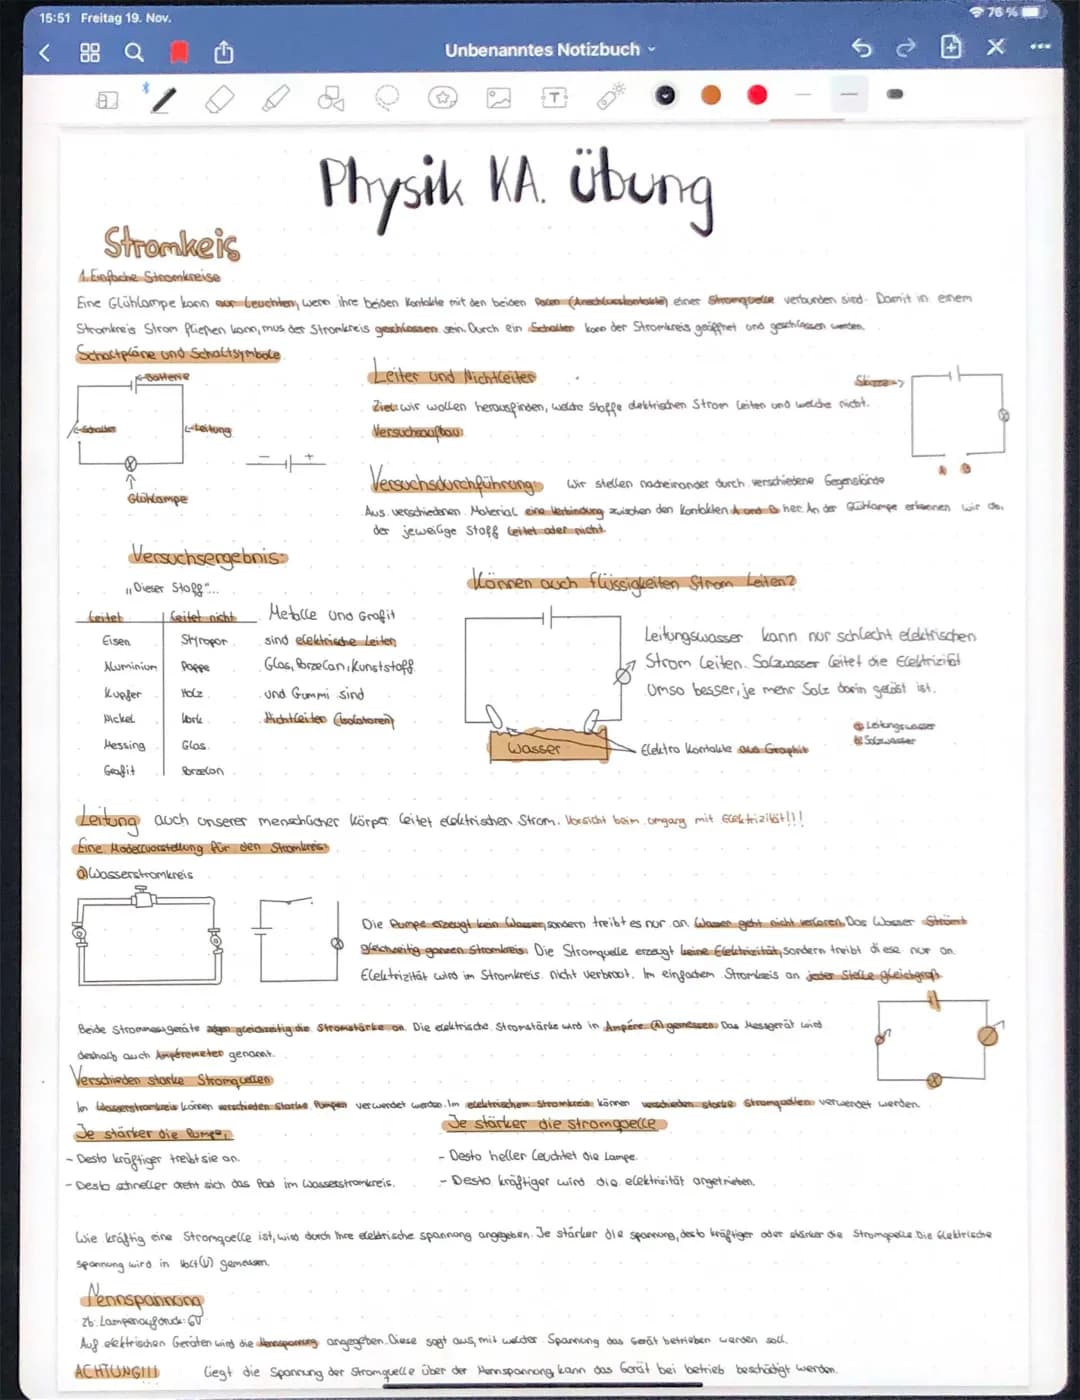 15:51 Freitag 19. Nov.
76 %
Unbenanntes Notizbuch
Physik KA. Übung
Stromkeis
1. Einfache Stromkreise
Eine Glühlampe kann nur Leuchten, wenn ihre beiden Kontakte mit den beiden Polen (Anschlusskontakte) einer Stromquelle verbunden sind. Damit in einem
Stromkreis Strom fließen kann, mus der Stromkreis geschlossen sein. Durch ein Schalter kann der Stromkreis geöffnet und geschlossen werden.
Schaltpläne und Schaltsymbole
Batterie
Schalter
Leitung
Glühlampe
Leiter und Nichtleiter
Skizze
Ziel: wir wollen herausfinden, welche Stoffe elektrischen Strom leiten und welche nicht.
Versuchsaufbau:
A B
Versuchsdurchführung: Wir stellen nacheinander durch verschiedene Gegenstände
Aus verschiedenen Material eine Verbindung zwischen den Kontakten A und B her. An der Glühlampe erkennen wir ob
der jeweilige Stoff leitet oder nicht.
Versuchsergebnis:
„Dieser Stoff"...
Leitet Leitet nicht
Eisen Styropor
Aluminium Pappe
Kupfer Holz
Nickel Kork
Messing Glas
Grafit Porzelan
Metalle und Grafit
sind elektrische Leiter
Glas, Porzelan, Kunststoff
und Gummi sind
Nichtleiter (Isolatoren)
Können auch flüssigkeiten Strom Leiten?
Leitungswasser kann nur schlecht elektrischen
Strom Leiten. Salzwasser leitet die Elektrizität
Umso besser, je mehr Salz darin gelöst ist.
Wasser
Elektro Kontakte aus Graphit
Leitungswasser
Salzwasser
Leitung auch unserer menschlicher Körper leitet elektrischen Strom. Vorsicht beim umgang mit Elektrizität!!!
Eine Modellvorstellung für den Stromkreis
a) Wasserstromkreis
Die Pumpe erzeugt kein Wasser, sondern treibt es nur an. Wasser geht nicht verloren. Das Wasser Strömt
gleichzeitig ganzen Stromkreis. Die Stromquelle erzeugt keine Elektrizität, sondern treibt diese nur an.
Elektrizität wird im Stromkreis nicht verbraut. Im einfachem Stromkreis an jeder Stelle gleichgroß.
Beide Strommessgeräte zeigen gleichzeitig die Stromstärke an. Die elektrische Stromstärke wird in Ampére (A) gemessen. Das Messgerät wird
deshalb auch Ampéremeter genannt.
Verschieden starke Stromquellen
Im Wasserstromkreis können verschieden starke Pumpen verwendet werden. Im elektrischem Stromkreis können verschieden starke Stromquellen verwendet werden.
Je stärker die Pumpe,
- Desto kräftiger treibt sie an.
- Desto schneller dreht sich das Rad im Wasserstromkreis.
Je stärker die Stromquelle
- Desto heller leuchtet die Lampe.
- Desto kräftiger wird die elektrizität angetrieben.
Wie kräftig eine Stromquelle ist, wird durch ihre elektrische spannung angegeben. Je stärker die spannung, desto kräftiger oder stärker die Stromquelle. Die Elektrische
Spannung wird in Volt (V) gemessen.
Nennspannung
Zb. Lampenaufdruck: 6V
Auf elektrischen Geräten wird die Nennspannung angegeben. Diese sagt aus, mit welcher Spannung das Gerät betrieben werden soll.
ACHTUNG!!! Liegt die Spannung der Stromquelle über der Nennspannung, kann das Gerät bei betrieb beschädigt werden.